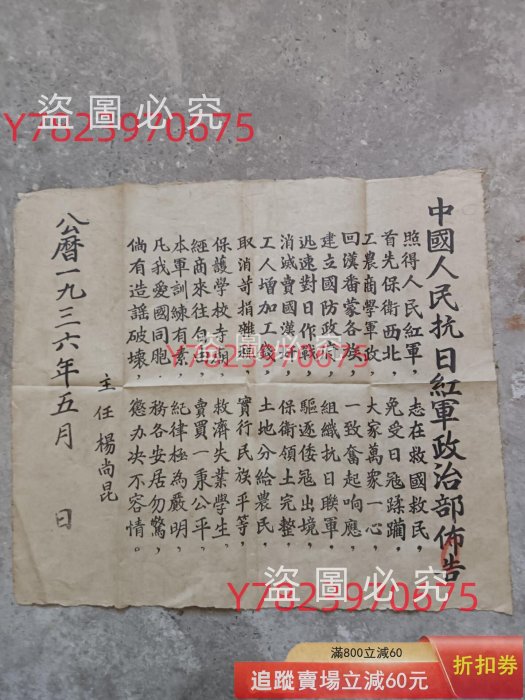 盜圖必究
Y7823970675
中國人民抗日紅軍政治部佈告
照得人民紅軍，志在救國救民，
首先保衛西北，免受日冦蹂躪，
工農商學軍政，大家萬衆一心，
回漢番蒙各族，一致奮起响應，
建立國防政府，組織抗日聯軍，
迅速對日作戰，驅逐倭冦出境，
消滅賣國漢奸，保衛領土完整，
工人增加工錢，土地分給農民，
取消苛捐雜，實行民族平等，
保護學校寺廟，救濟失業學生，
經商來往自由，賣買一秉公平，
本軍訓練有素，紀律極為嚴明，
凡我愛國同胞，務各安居勿驚，
倘有造謠破壞，懲办决不容情。
主任楊尚昆
公曆一九三六年五月 日
盜圖必究
Y7823970675
盜圖必究
Y7823970675
滿800立減60
追蹤賣場立減60元
折扣券